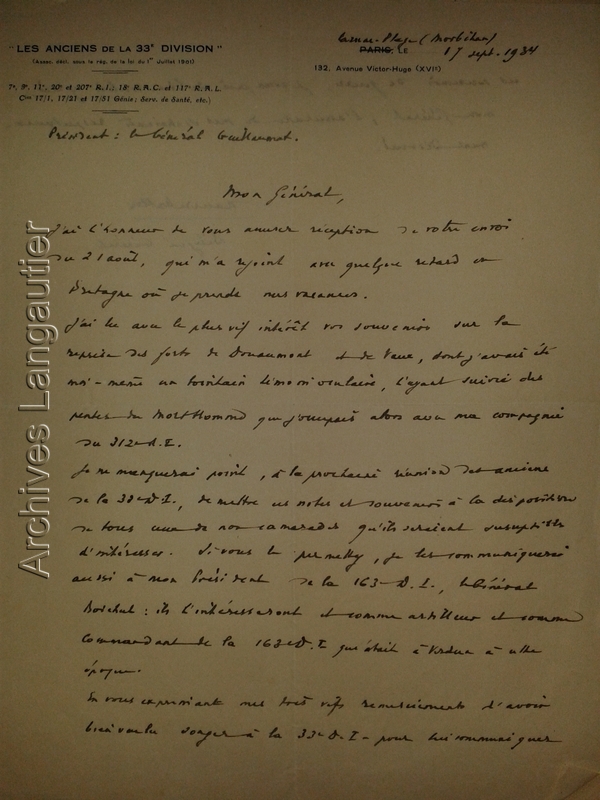 "LES ANCIENS DE LA 33e DIVISION"
(Assoc. décl. sous le rég. de la loi du 1er Juillet 1901)
7e, 9e, 11e, 20e et 207e R.I.; 18e R.A.C. et 117e R.A.L.
Cies 17/1, 17/21 et 17/51 Génie; Serv. de Santé, etc.)
Carnac-Plage (Morbihan)
PARIS, LE 17 sept. 1934
132, Avenue Victor-Hugo (XVIe)
Président : le Général Guillaumat.
Mon Général,
J'ai l'honneur de vous accuser réception de votre envoi
du 21 août, qui m'a rejoint avec quelque retard en
Bretagne où je prends mes vacances.
J'ai lu avec le plus vif intérêt vos souvenirs sur la
reprise des forts de Douaumont et de Vaux, dont j'avais été
moi-même un lointain témoin oculaire, l'ayant suivie des
pentes du Mort Homme que j'occupais alors avec ma compagnie
du 312e d.I.
Je ne manquerai point, à la prochaine réunion des anciens
de la 33e D.I., de mettre ces notes et souvenirs à la disposition
de tous ceux de nos camarades qu'ils seraient susceptibles
d'intéresser. Si vous le permettez, je les communiquerai
aussi à mon Président de la 163e D.I., le Général
Boichut : ils l'intéresseront et comme artilleur et comme
Commandant de la 163e D.I. qui était à Verdun à cette
époque.
En vous exprimant mes très vifs remerciements d'avoir
bien voulu songer à la 33e D.I. pour lui communiquer
Archives Langautier